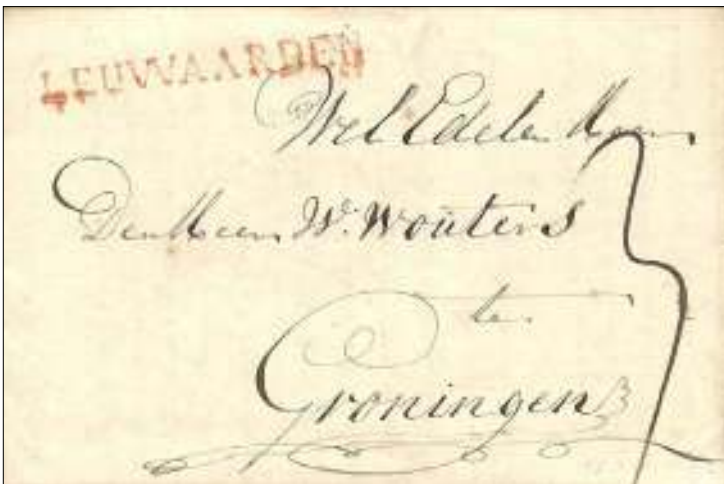 LEUWAARDEN
Wel Edelen Heer
Den Heer W. Wouters
te
Groningen